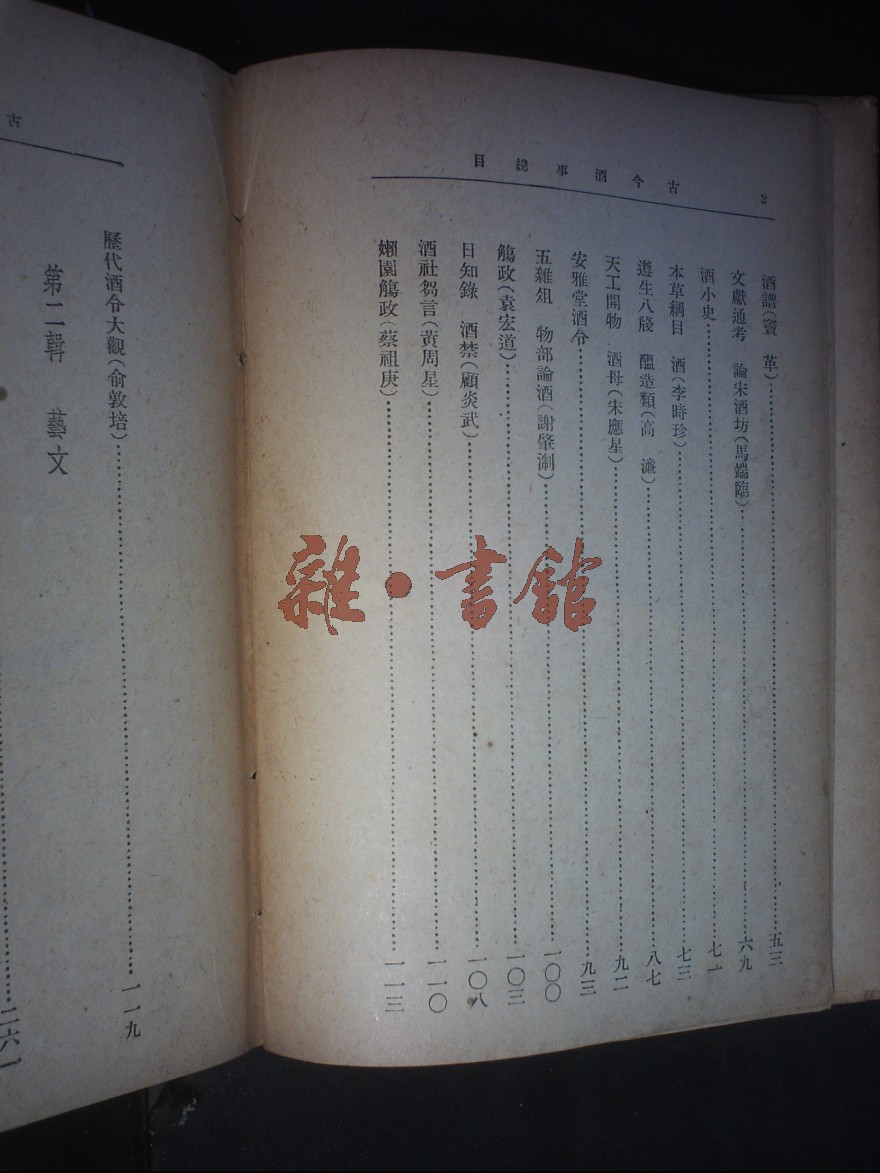 2
古今酒事總目
酒譜(竇 革)……五三
文獻通考 論宋酒坊(馬端臨)……六九
酒小史……七一
本草綱目 酒(李時珍)……七三
遵生八牋 醞造類(高 濂)……八七
天工開物 酒母(朱應星)……九二
安雅堂酒令……九三
五雜俎 物部論酒(謝肇淛)……一〇〇
觴政(袁宏道)……一〇三
日知錄 酒禁(顧炎武)……一〇八
酒社芻言(黃周星)……一一〇
嬾園觴政(蔡祖庚)……一一三
古
歷代酒令大觀(俞敦培)……一一九
第二輯 藝文
……二六一
雜·書館